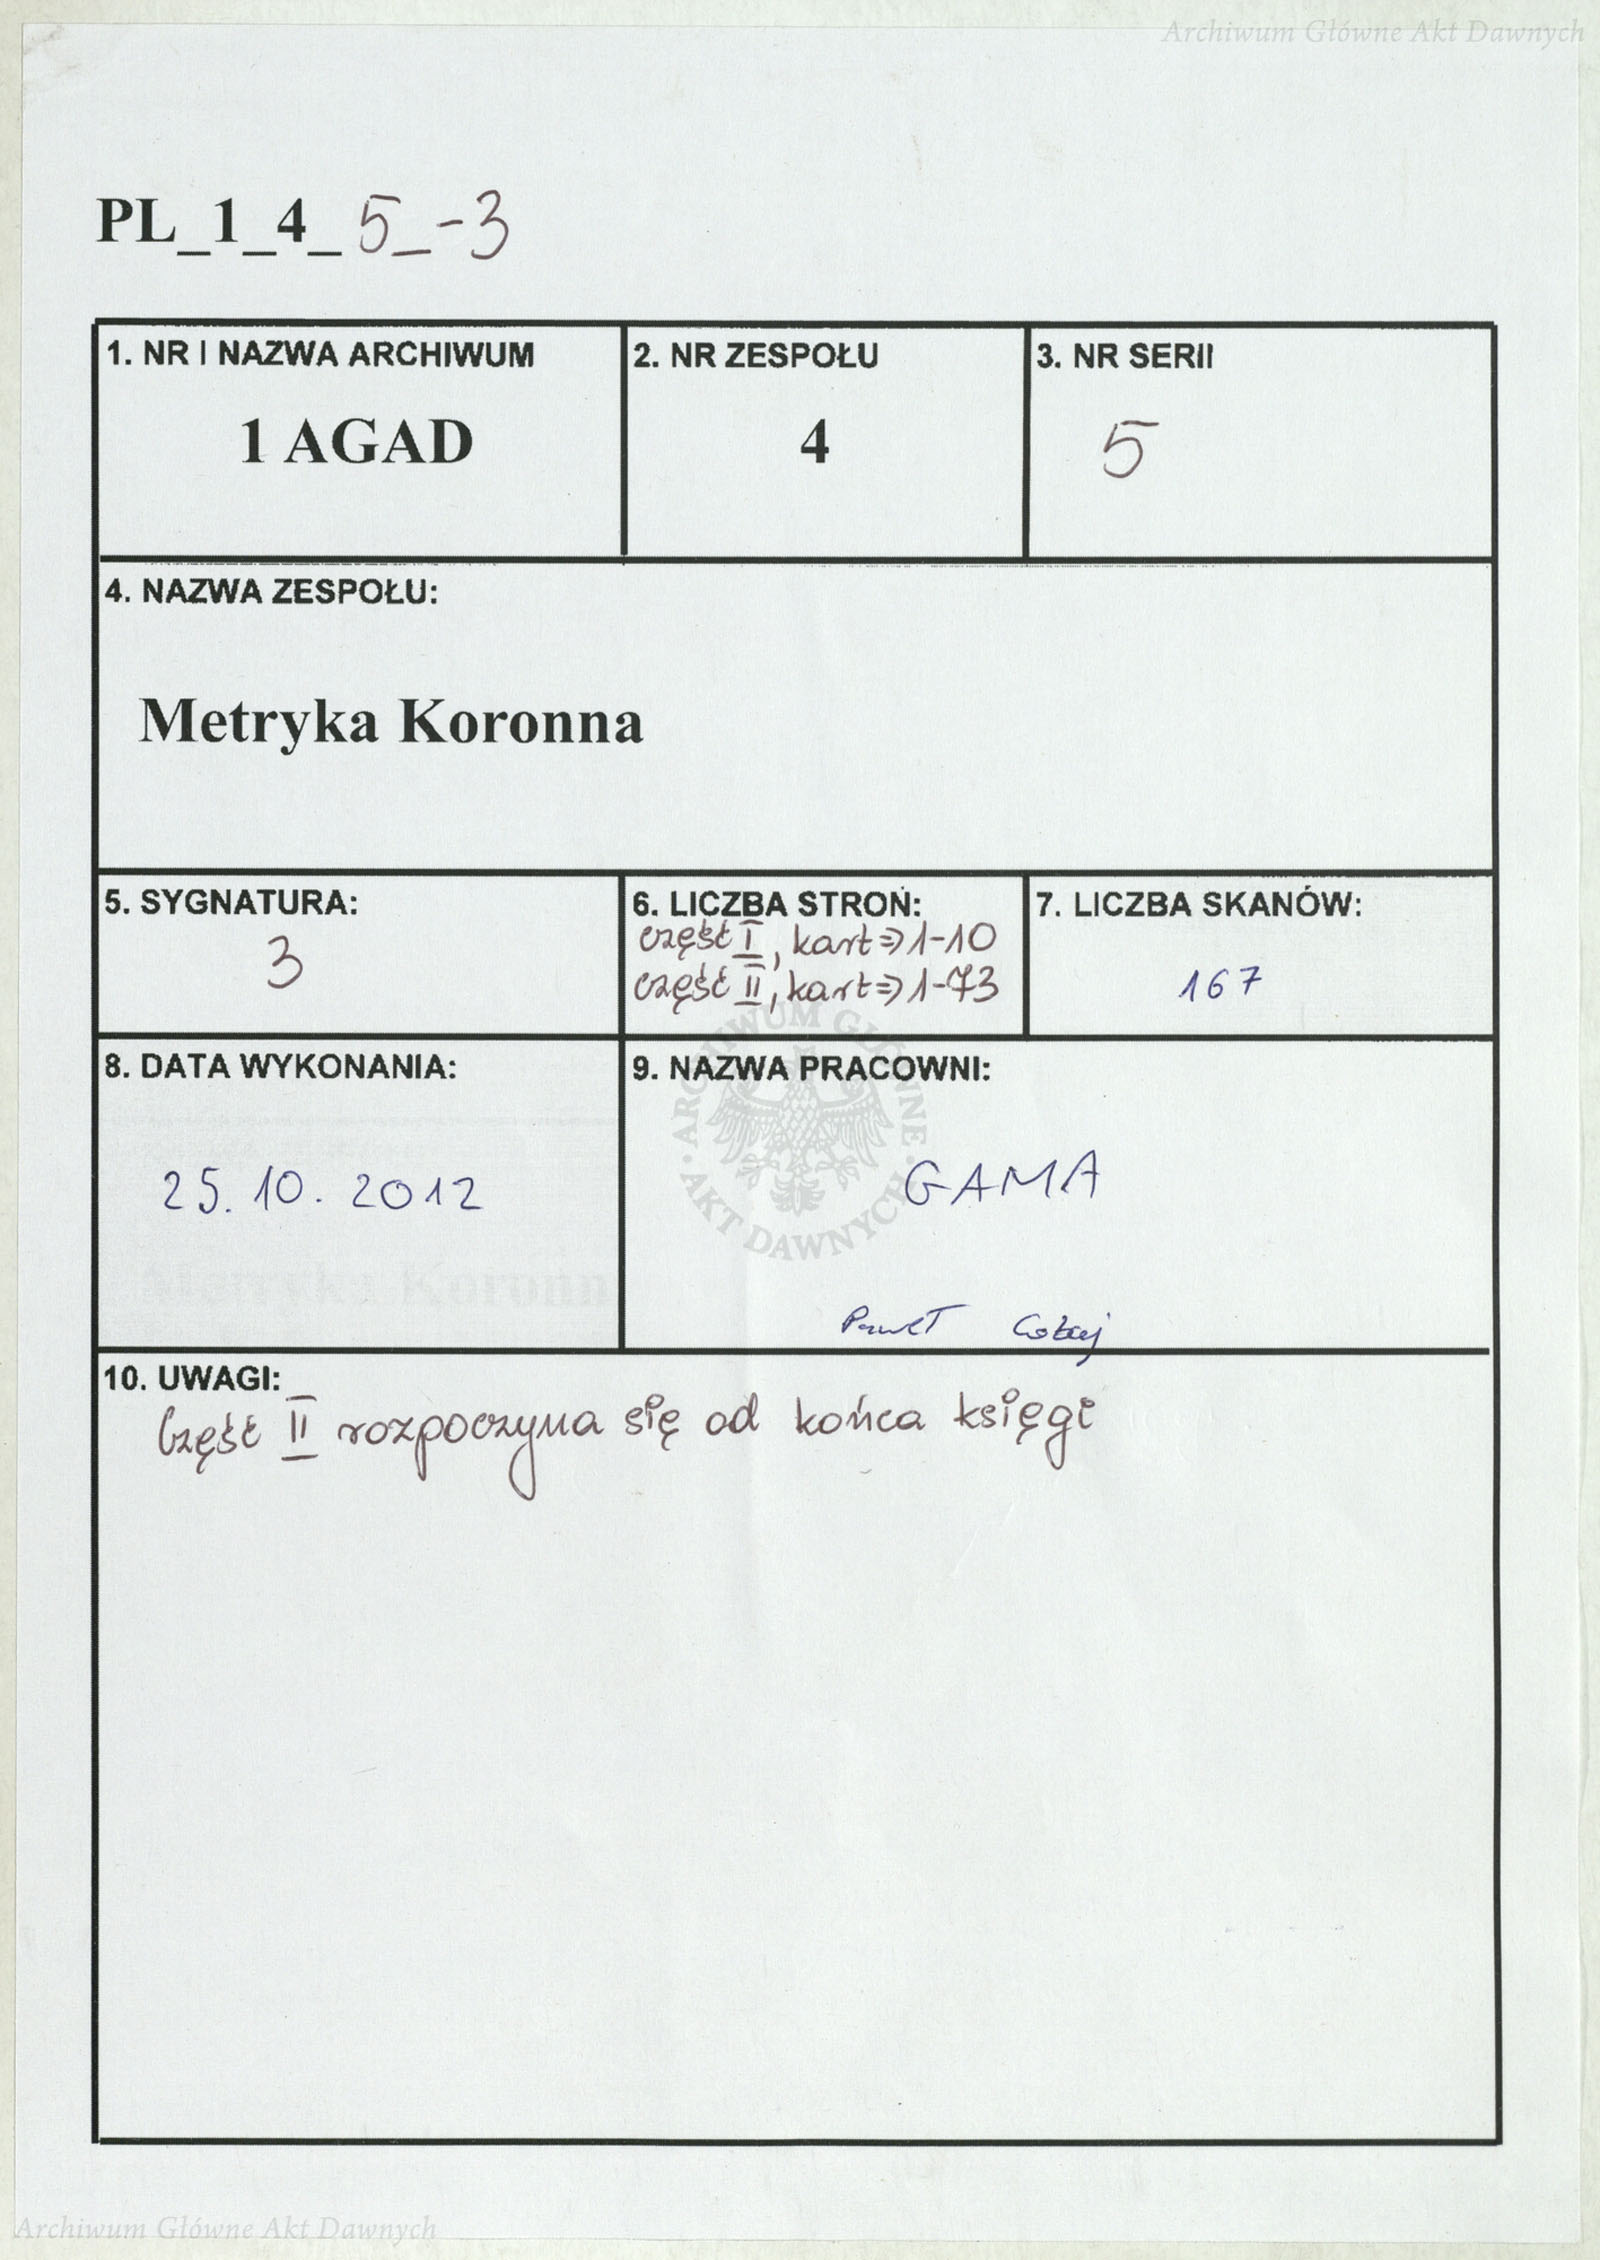 Archiwum Główne Akt Dawnych
PL_1_4_5_-3
1. NR I NAZWA ARCHIWUM
1 AGAD
2. NR ZESPOŁU
4
3. NR SERII
5
4. NAZWA ZESPOŁU:
Metryka Koronna
5. SYGNATURA:
3
6. LICZBA STRON:
część I, kart => 1-10
część II, kart => 1-73
7. LICZBA SKANÓW:
167
8. DATA WYKONANIA:
25.10.2012
9. NAZWA PRACOWNI:
GAMA
Paweł
ARCHIWUM GŁÓWNE • AKT DAWNYCH •
10. UWAGI:
Część II rozpoczyna się od końca księgi
Archiwum Główne Akt Dawnych